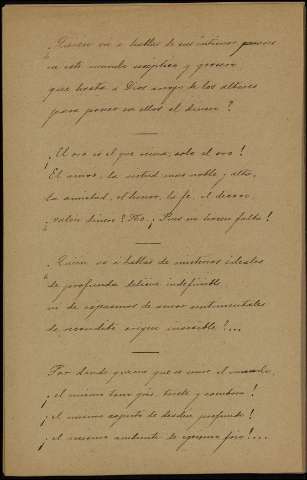 ¿Quién va a hablar de sus íntimos pesares
en este mundo escéptico y grosero
que hasta a Dios arroja de los altares
para poner en ellos el dinero?
¡El oro es el que reina, solo el oro!
El amor, la virtud mas noble y alta,
la amistad, el honor, la fe, el decoro,
¿valen dinero? No. ¡Pues no hacen falta!
¿Quién va a hablar de misterios ideales
de profunda delicia indefinible
ni de espasmos de amor sentimentales
de recóndito origen invisible?...
Por donde quiera que se mire el mundo,
¡el mismo tono gris, triste y sombrio!
¡el mismo aspecto de desden profundo!
¡el mismo ambiente de egoismo frio!...